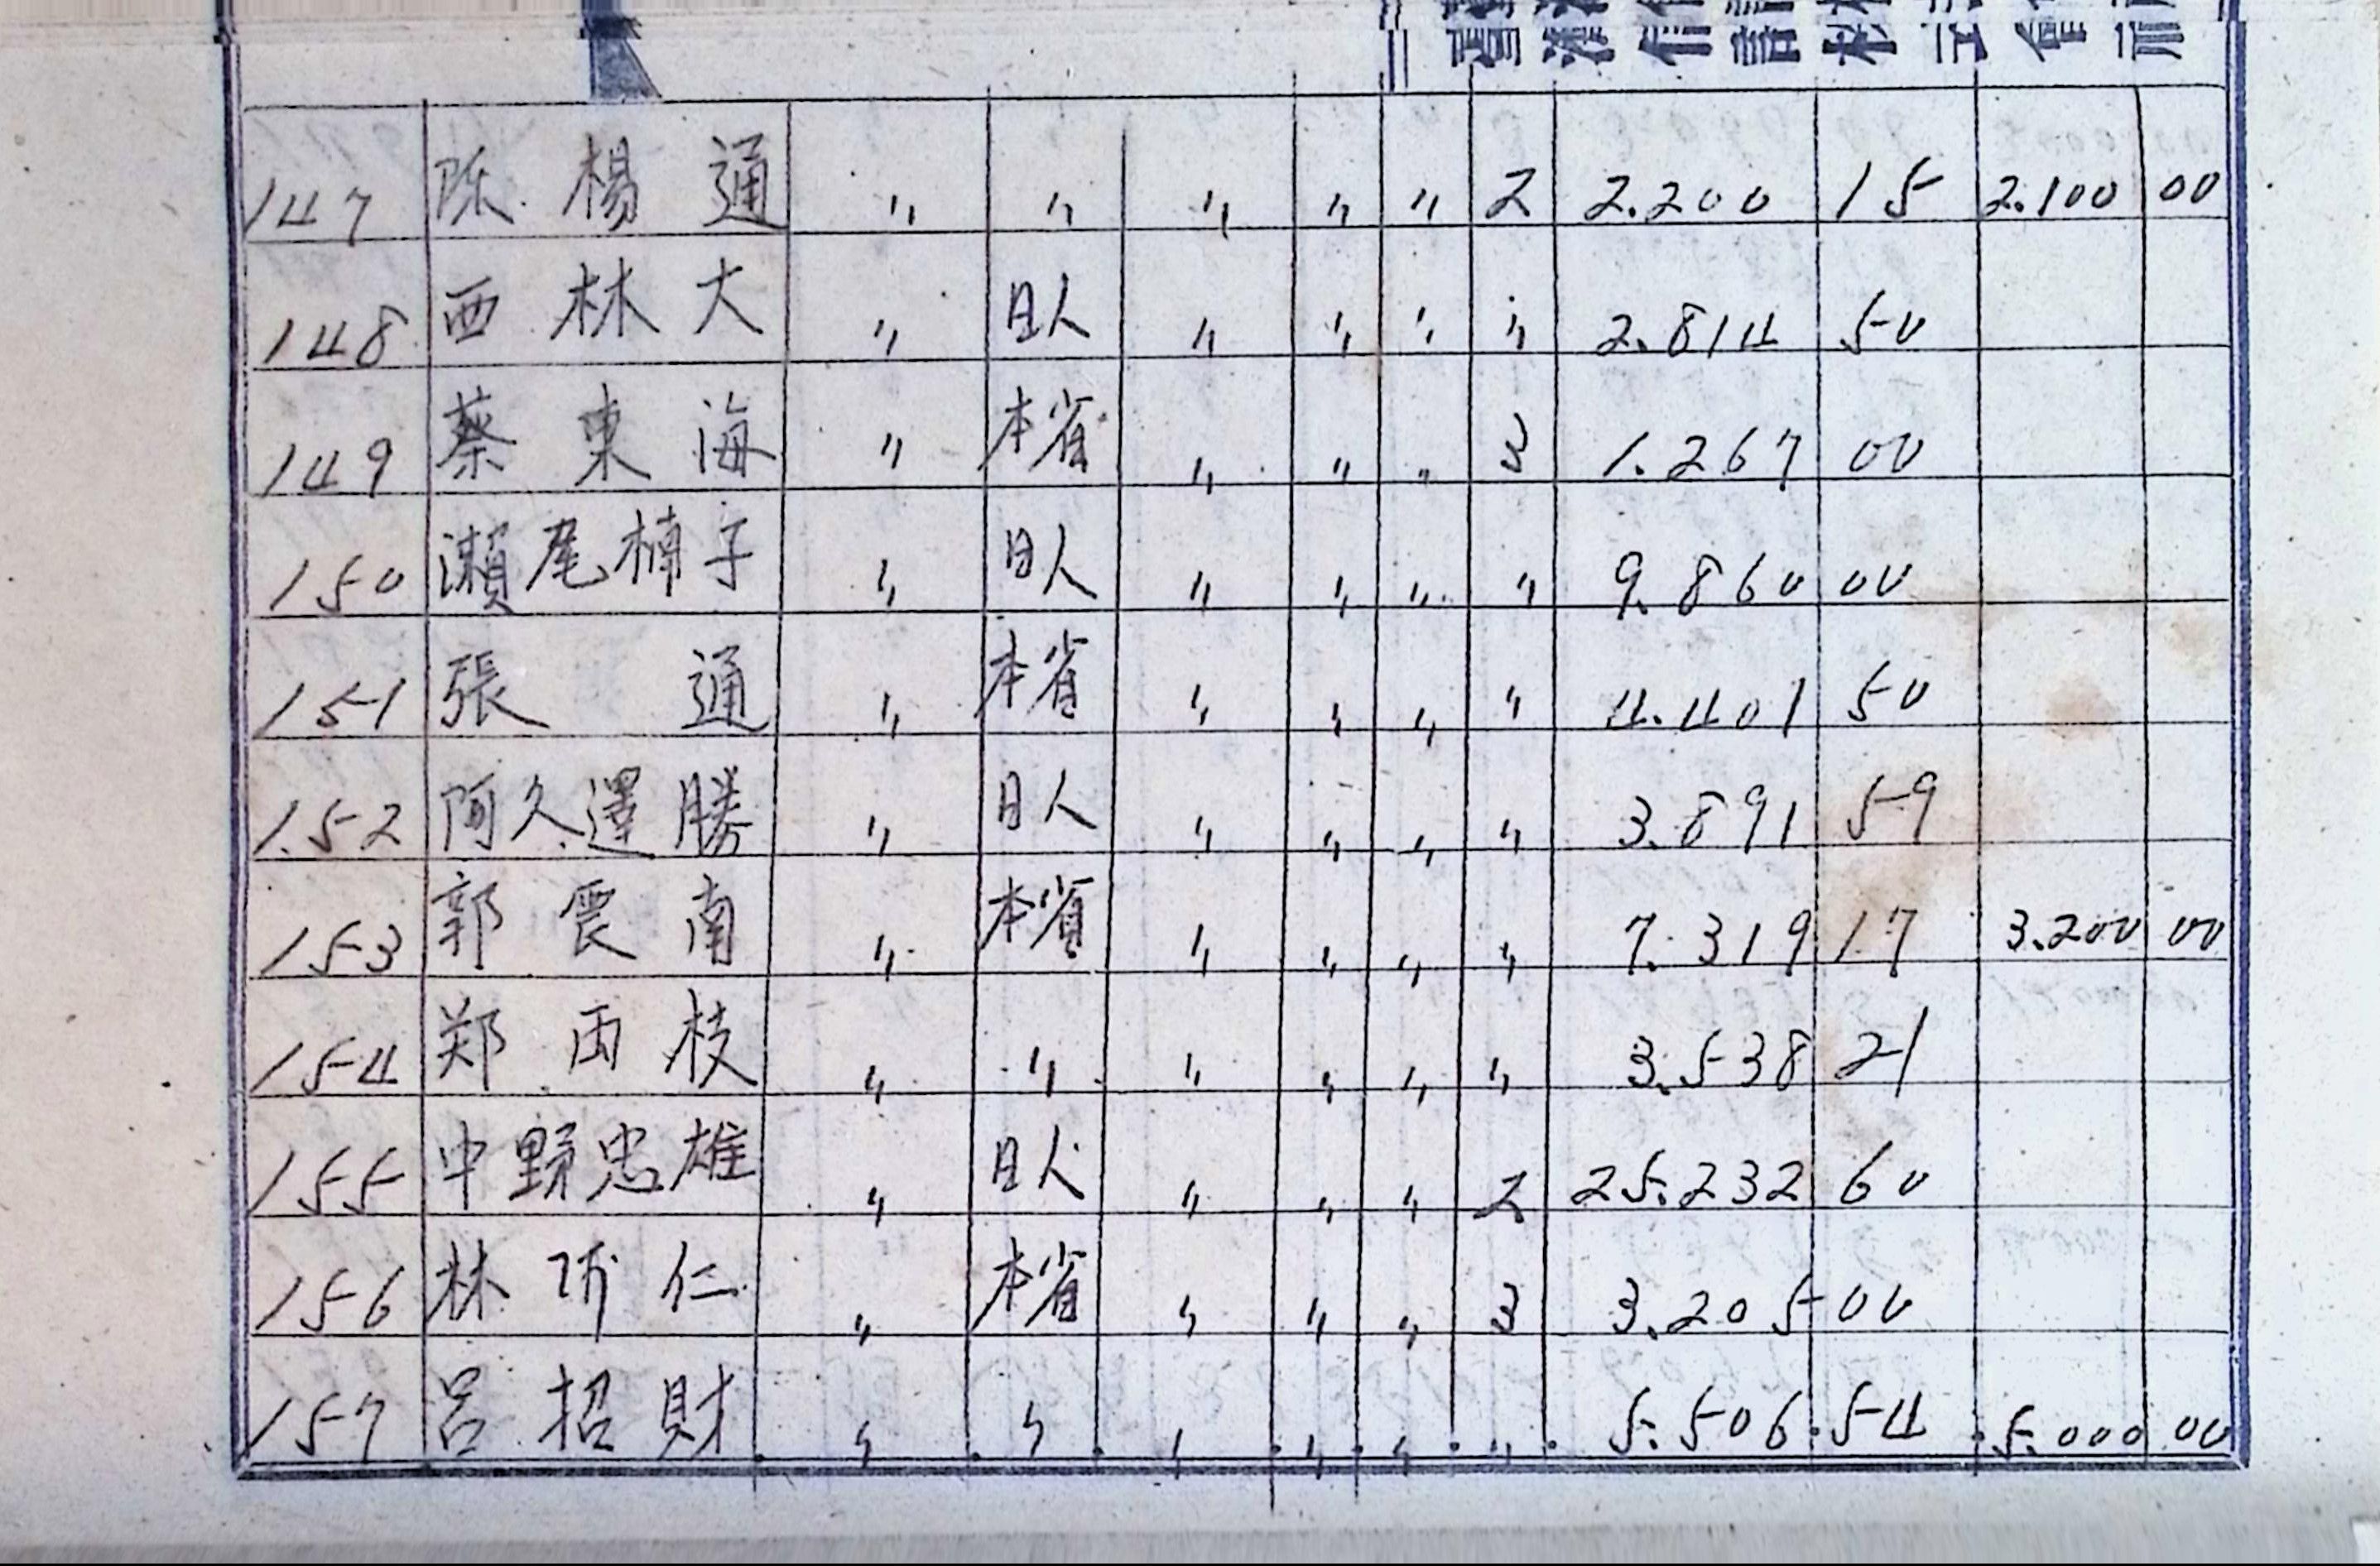 147 陈楊通 〃 〃 〃 〃 〃 2 2.200 15 2.100 00
148 西林大 〃 日人 〃 〃 〃 〃 2.814 50
149 蔡東海 〃 本省 〃 〃 〃 3 1.267 00
150 瀨尾楠子 〃 日人 〃 〃 〃 〃 9.860 00
151 張通 〃 本省 〃 〃 〃 〃 4.401 50
152 阿久澤勝 〃 日人 〃 〃 〃 〃 3.891 59
153 郭震南 〃 本省 〃 〃 〃 〃 7.319 17 3.200 00
154 郑雨枝 〃 〃 〃 〃 〃 〃 3.538 21
155 中野忠雄 〃 日人 〃 〃 〃 2 25.232 60
156 林 仁 〃 本省 〃 〃 〃 3 3.205 00
157 呂招財 〃 〃 〃 〃 〃 〃 5.506 54 5.000 00